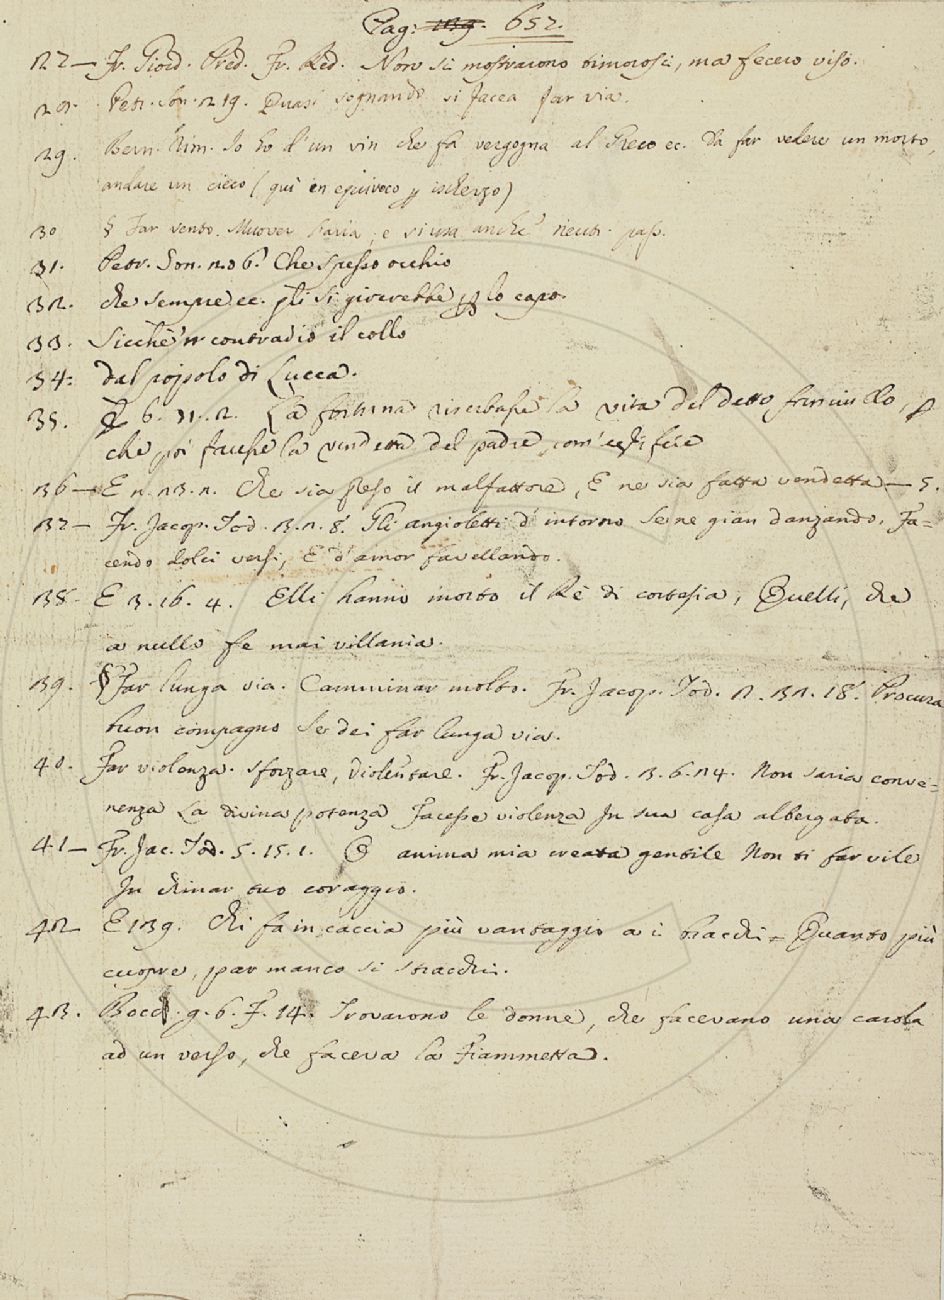 Pag: 652.
27 — Fr. Giord. Pred. Fr. Red. Non si mostrarono timorosi, ma fecero viso.
28. Petr. Son. 219. Quasi sognando si facea far via.
29. Bern. Rim. Io ho d'un vin che fa vergogna al Greco ec. da far vedere un morto,
andare un cieco (qui in equivoco p ischerzo)
30 § Far vento. Muover l'aria, e si usa anche neutr. pass.
31. Petr. Son. 206. Che spesso occhio
32. che sempre ec. gli si girerebbe lo capo.
33. Sicchè contradiò il collo
34: dal popolo di Lucca.
35. E 6. 31. 2. La fortuna riserbasse la vita del detto fanciullo, p
che poi facesse la vendetta del padre, com' fece
36 — E 12. 13. 2. Che sia preso il malfattore, E ne sia fatta vendetta — 5.
37 — Fr. Jacop. Tod. 3. 2. 8. Gli angioletti d'intorno Se ne gian danzando, Fa=
cendo dolci versi, E d'amor favellando.
38 — E 3. 16. 4. Elli hanno morto il Rè di cortesia, Quelli, che
a nullo fe mai villania.
39. § Far lunga via. Camminar molto. Fr. Jacop. Tod. 2. 32. 18. Procura
buon compagno Se dei far lunga via.
40. Far violenza. Sforzare, violentare. Fr. Jacop. Tod. 3. 6. 24. Non saria conve=
nenza La divina potenza Facesse violenza In sua casa albergata.
41 — Fr. Jac. Tod. 5. 15. 1. O anima mia creata gentile Non ti far vile
In chinar tuo coraggio.
42 E 139. Chi fa in caccia più vantaggio a i bracchi = Quanto più
cuopre, par manco si stracchi.
43. Bocc. g. 6. F. 14. Trovarono le donne, che facevano una carola
ad un verso, che faceva la Fiammetta.